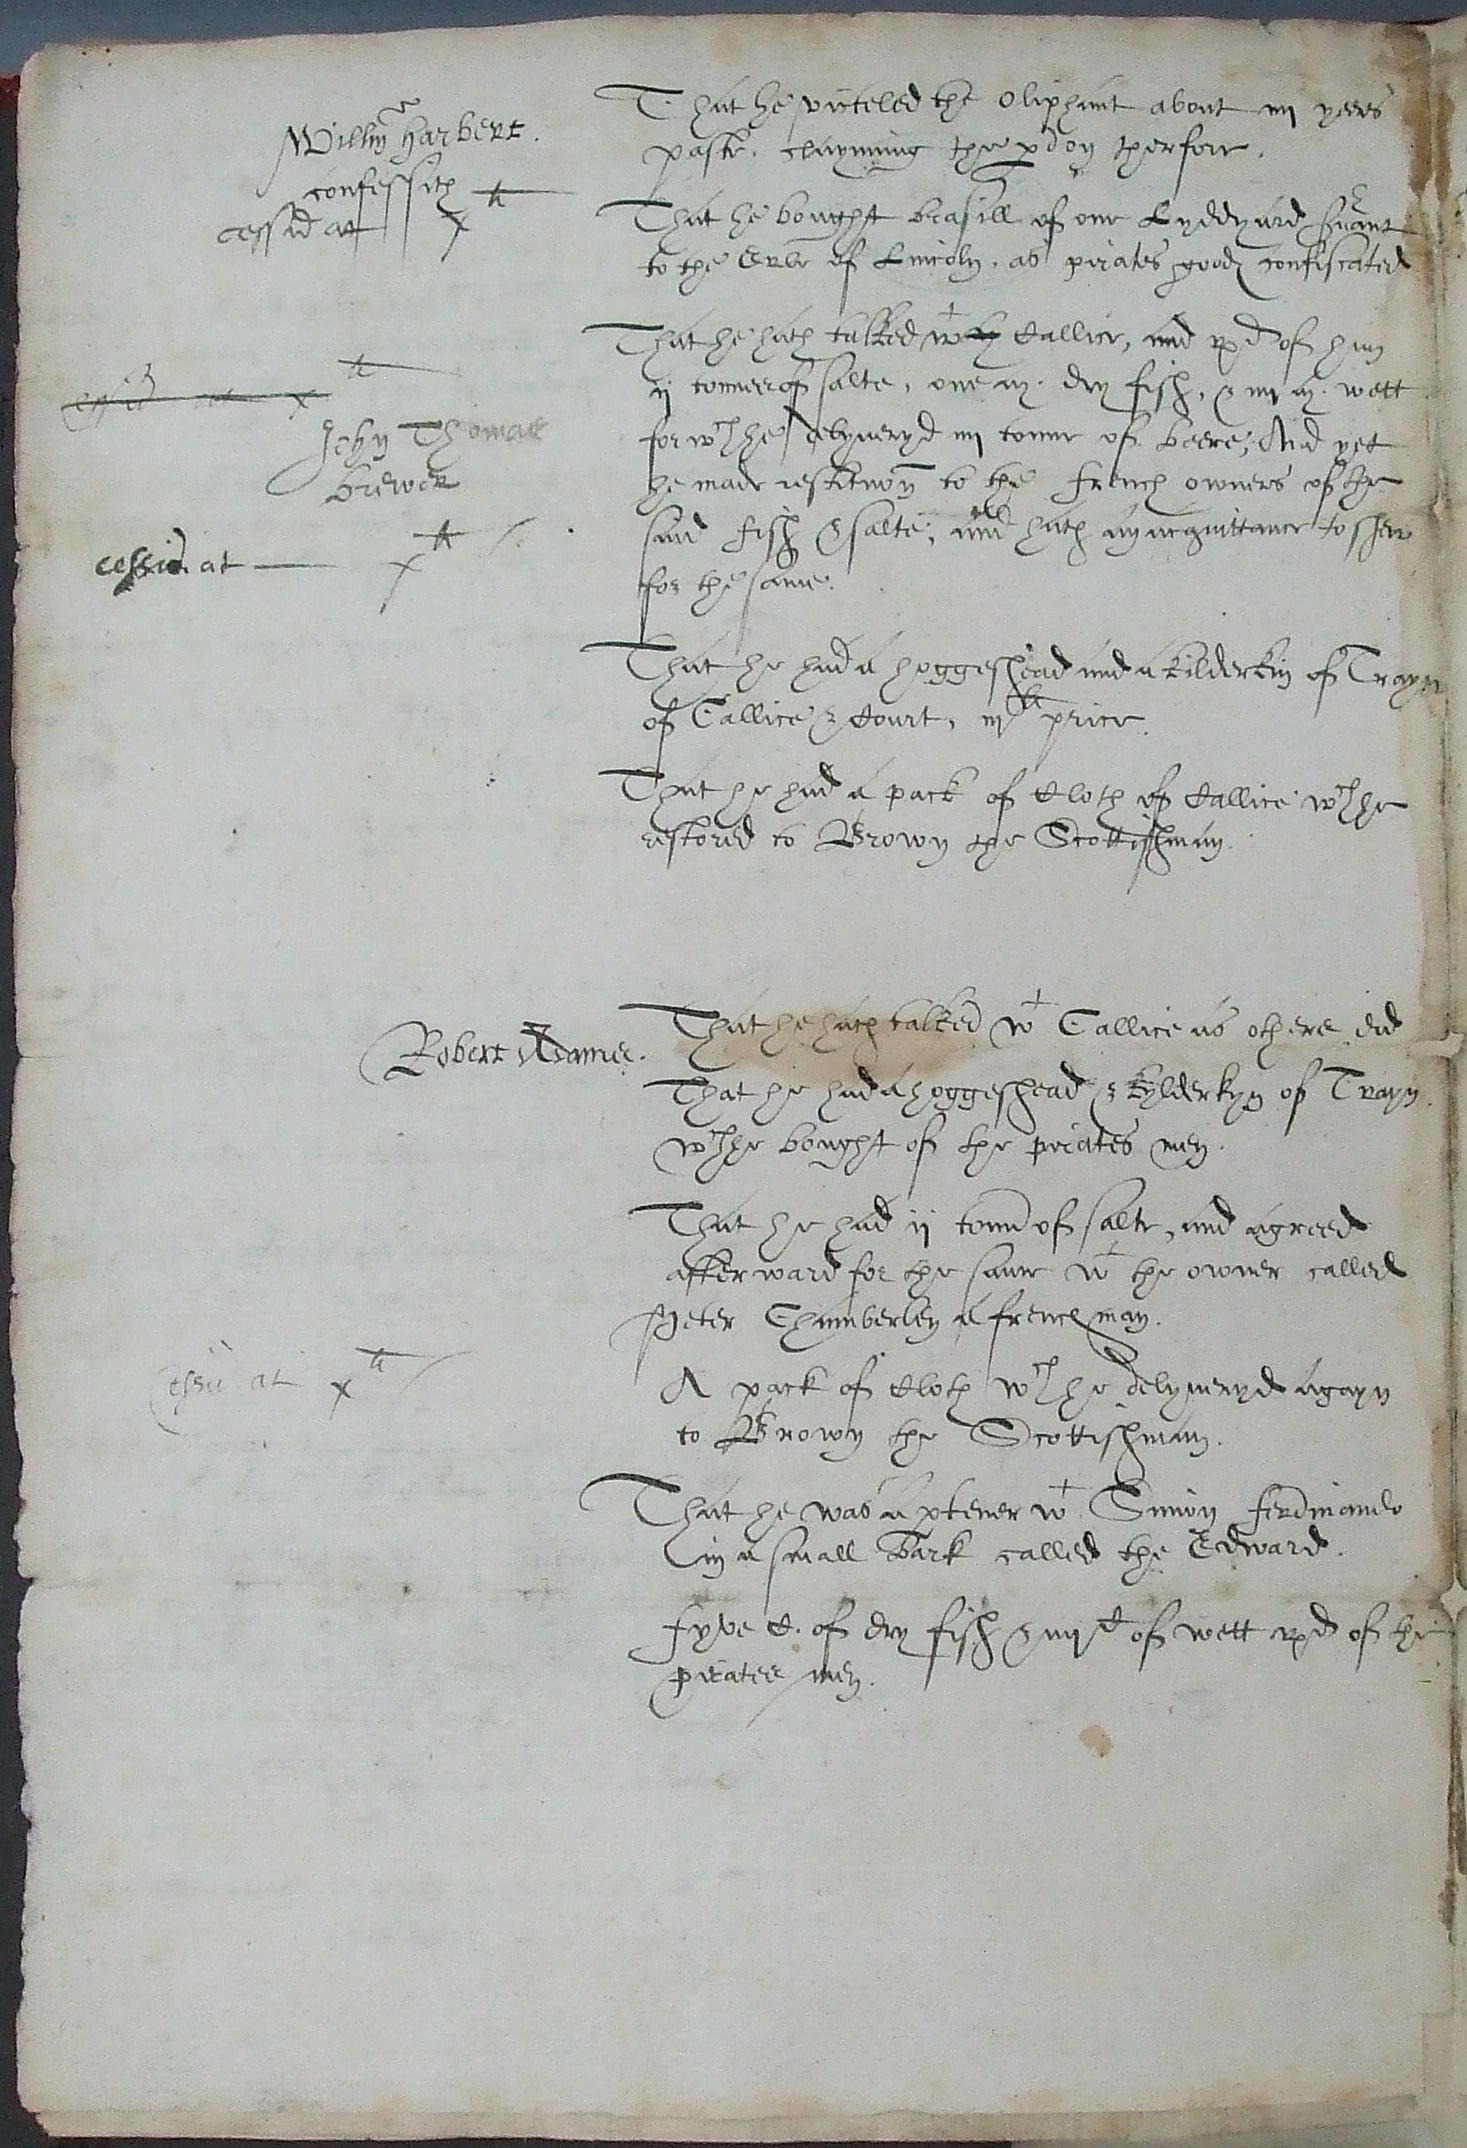 Willm Harbert.
confessith
cessid at x li
That he victeled the Oliphant about iiij yeers
paste. clayming the pdon therfore.
That he bought brasill of one Lyddyard svant
to the Erle of Lincoln, as pirates goods confiscated
cessid at x li
John Thomas
brewer
cessid at — x li
That he hath talked wt Callice, and rxd of him
ij tonnes of salte, one m. dry fish, & iiij m. wett
for wch he delyveryd iiij tonne of beere, And yet
he made restitucon to the french owners of the
said fish & salte, and hath an acquittance to shew
for the same.
That he had a hoggeshead and a kilderkin of Trayn
of Callice & Court, iij li price.
That he had a pack of Cloth of Callice wch he
restored to Brown the Scottishman.
Robert Adames.
That he hath talked wt Callice as others did
That he had a hoggeshead & kylderkyn of Trayn
wch he bought of the pirates men.
That he had ij tonn of salte, and agreed
afterward for the same wt the owner called
Peter Chamberlen a frenchman.
cessid at x li
A pack of Cloth wch he delyveryd agayn
to Brown the Scottishman.
That he was a ptener wt Simon ferdinando
in a small bark called the Edward.
fyve C. of dry fish & iiij C of wett rxd of the
pirates men.